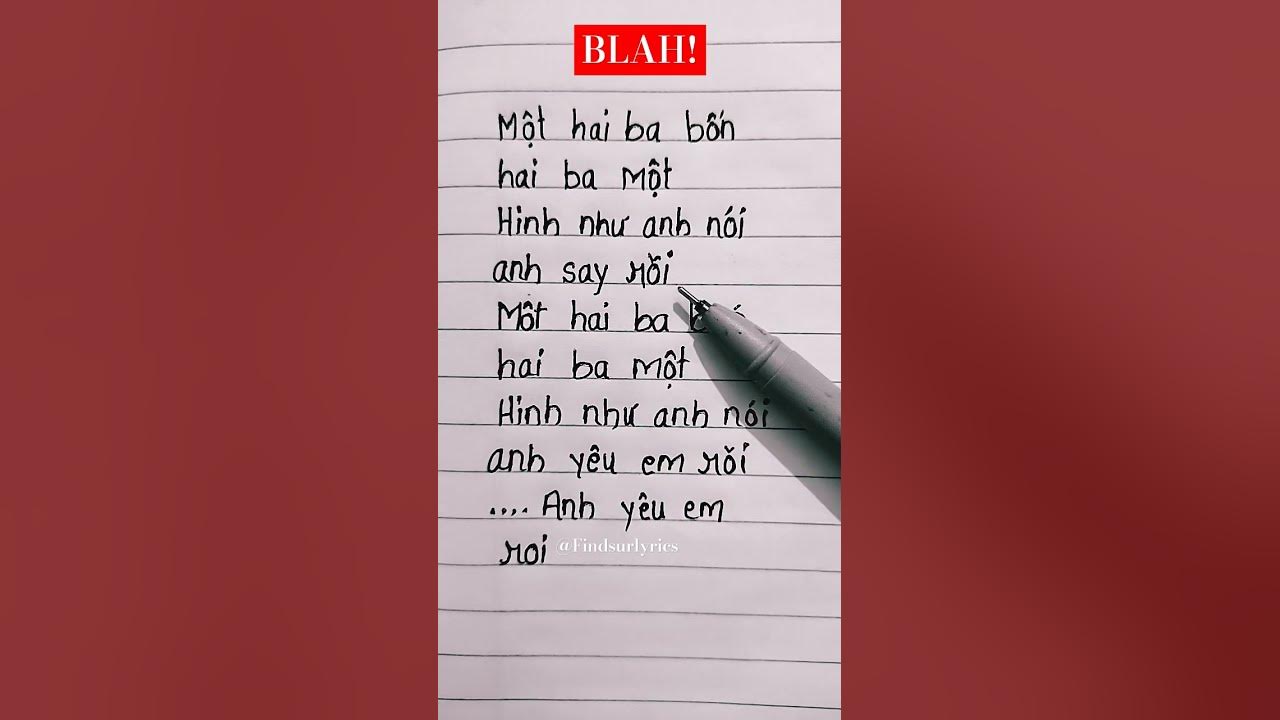 BLAH!
Một hai ba bốn
hai ba Một
Hinh như anh nói
anh say rồi
Một hai ba
hai ba một
Hinh như anh nói
anh yêu em rồi
.... Anh yêu em
roi
@Findsurlyrics